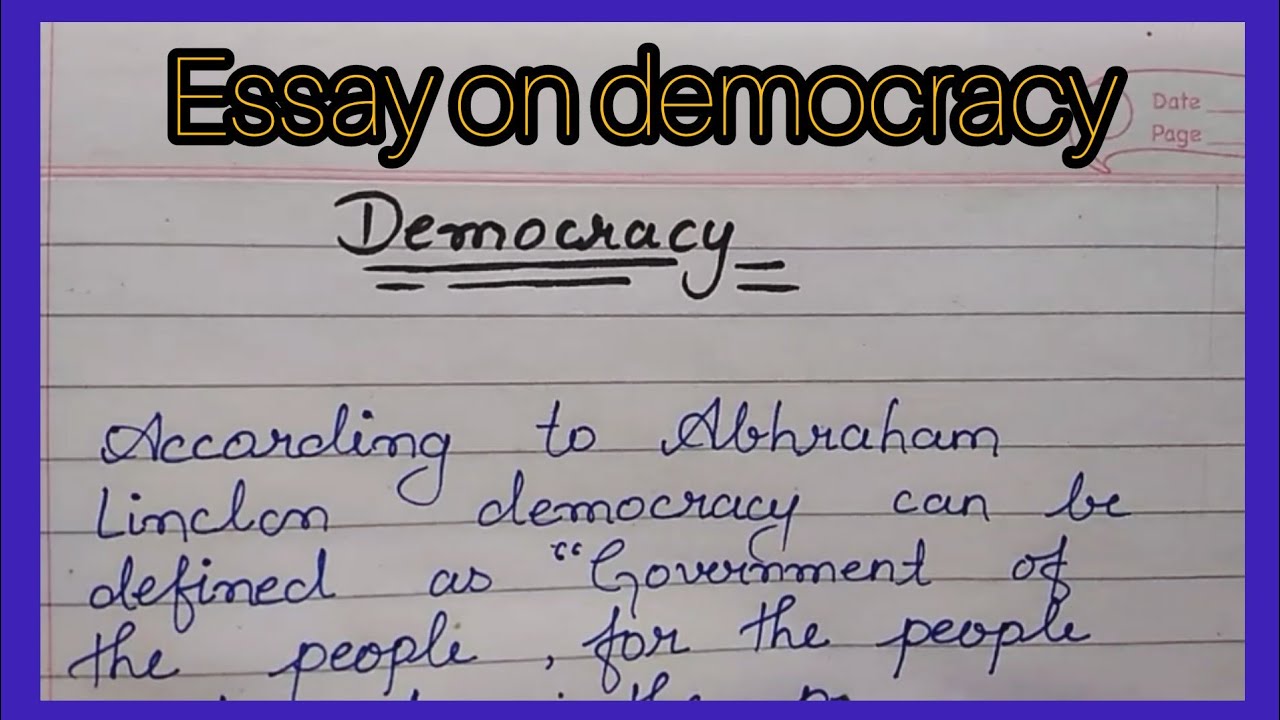 Essay on democracy
Date
Page
Democracy
According to Abhraham
Linclon democracy can be
defined as "Government of
the people, for the people